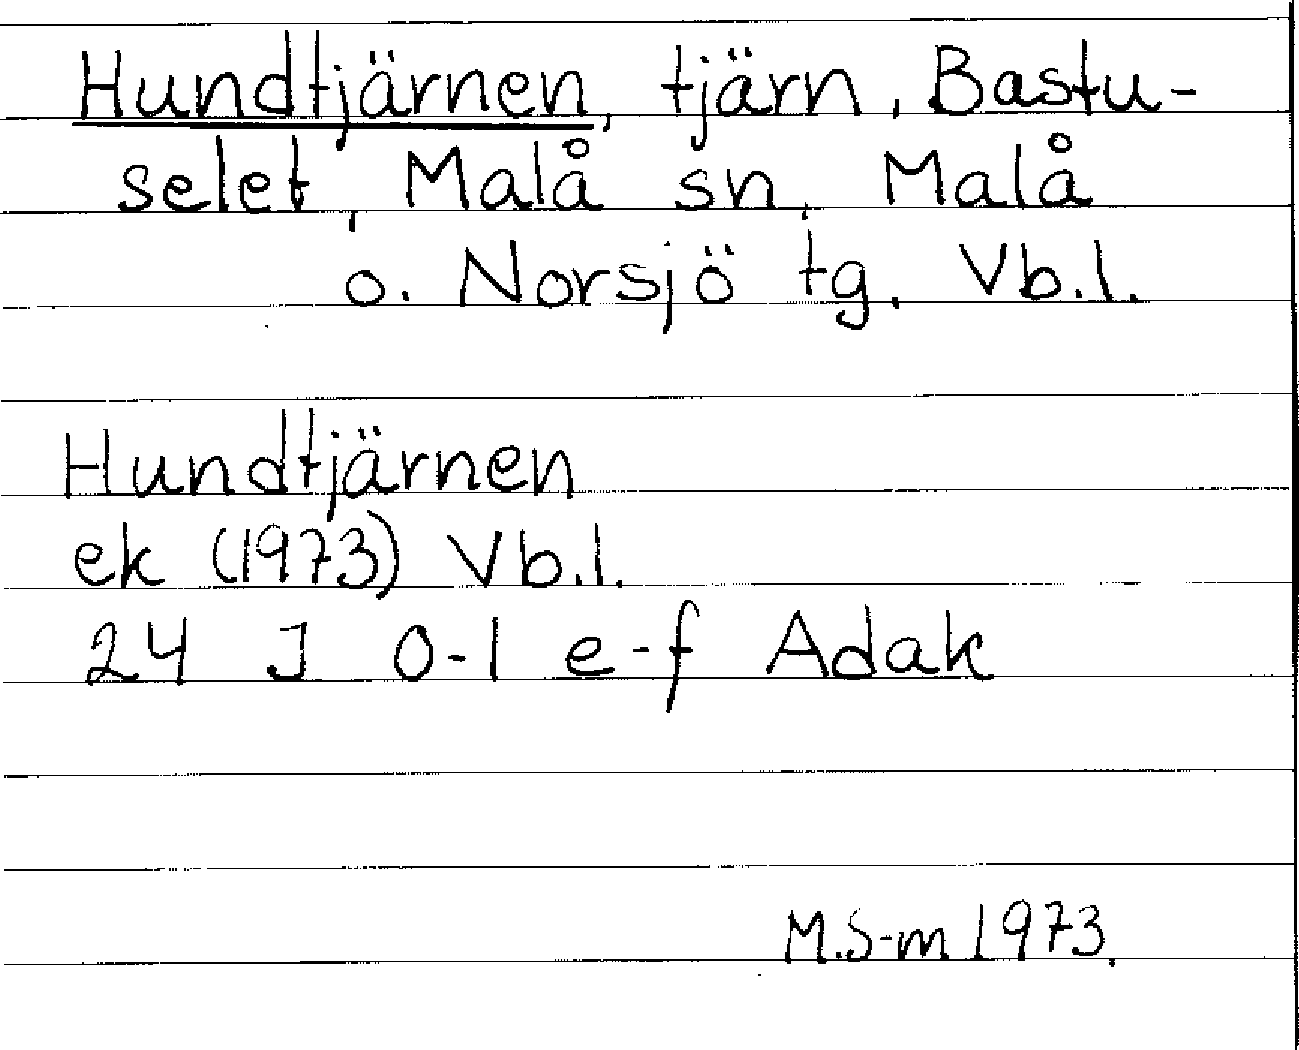 Hundtjärnen, tjärn, Bastu-
selet, Malå sn, Malå
o. Norsjö tg, Vb.l.
Hundtjärnen
ek (1973) Vb.l.
24 J 0-1 e-f Adak
M.S-m 1973.